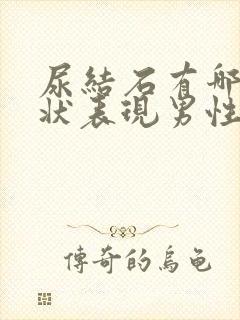 尿結石有哪
狀表現男性
傳奇的烏龟